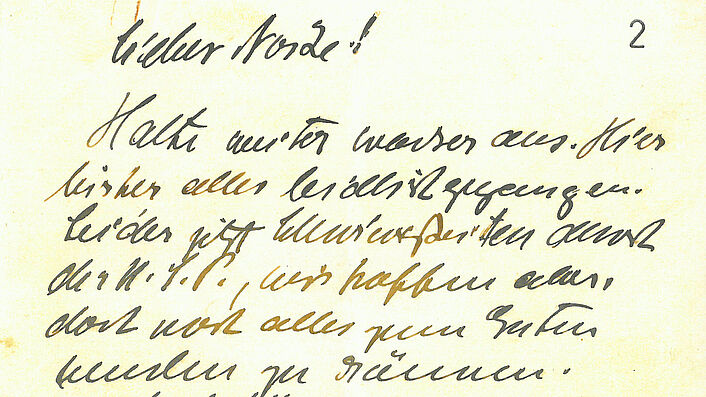 2
Lieber Noske!
Halte weiter wacker aus. Hier
bisher alles leidlich gegangen.
Leider jetzt Schwierigkeiten durch
die U.S.P., wir hoffen aber,
doch noch alles zum Guten
wenden zu können.